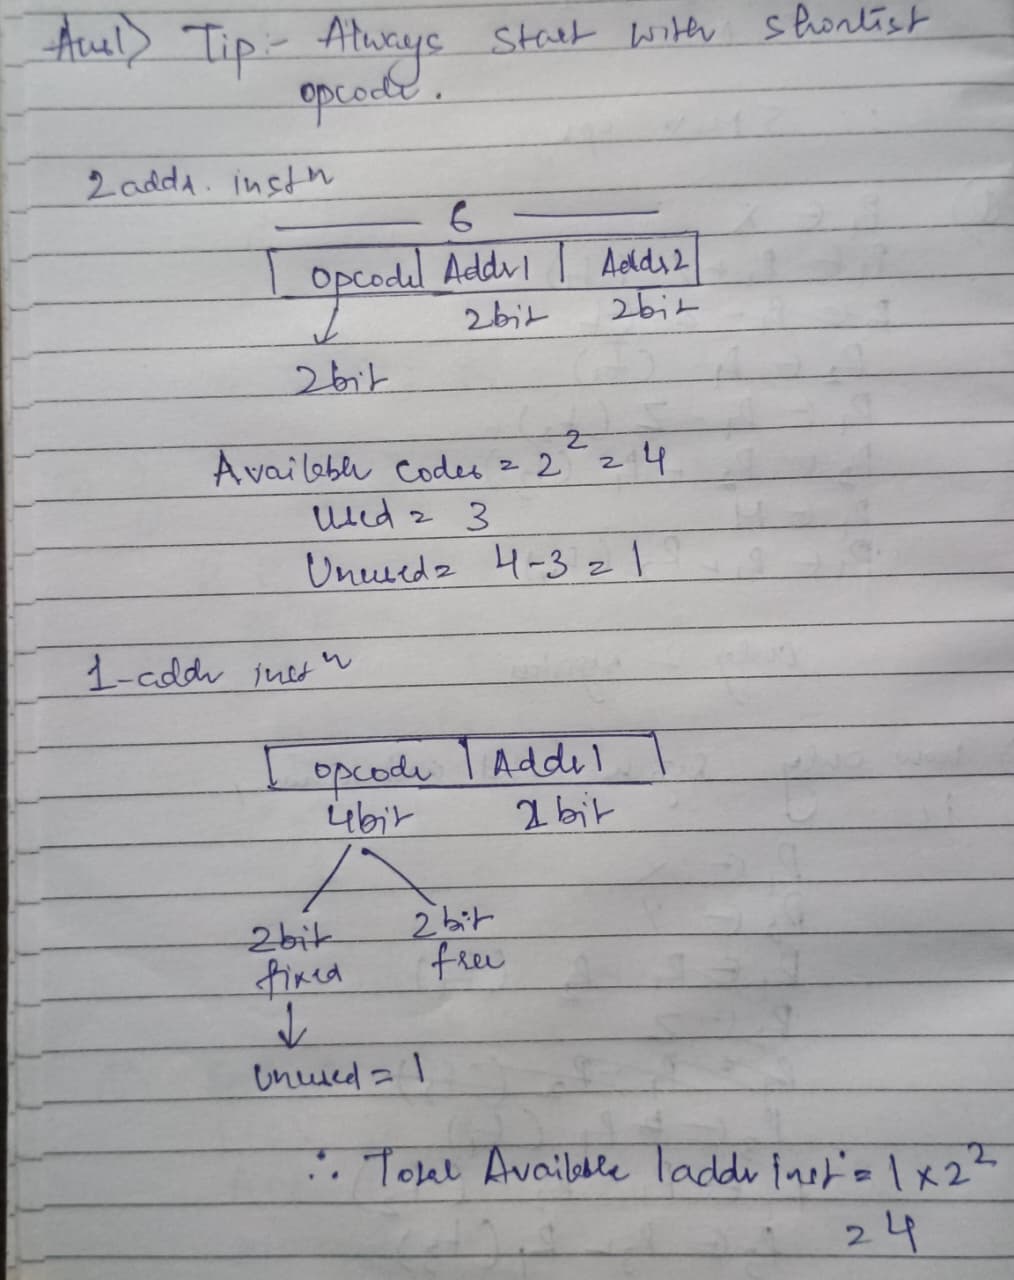 Ans1) Tip:- Always start with shortist
opcode.
2 addr. instn
6
opcode Addr1 Addr2
2bit 2bit
2bit
Available codes = 2² = 4
Used = 3
Unused = 4-3 = 1
1-addr instn
opcode Addr1
4bit 2 bit
2bit 2bit
fixed free
Unused = 1
∴ Total Available 1addr inst = 1 x 2²
= 4